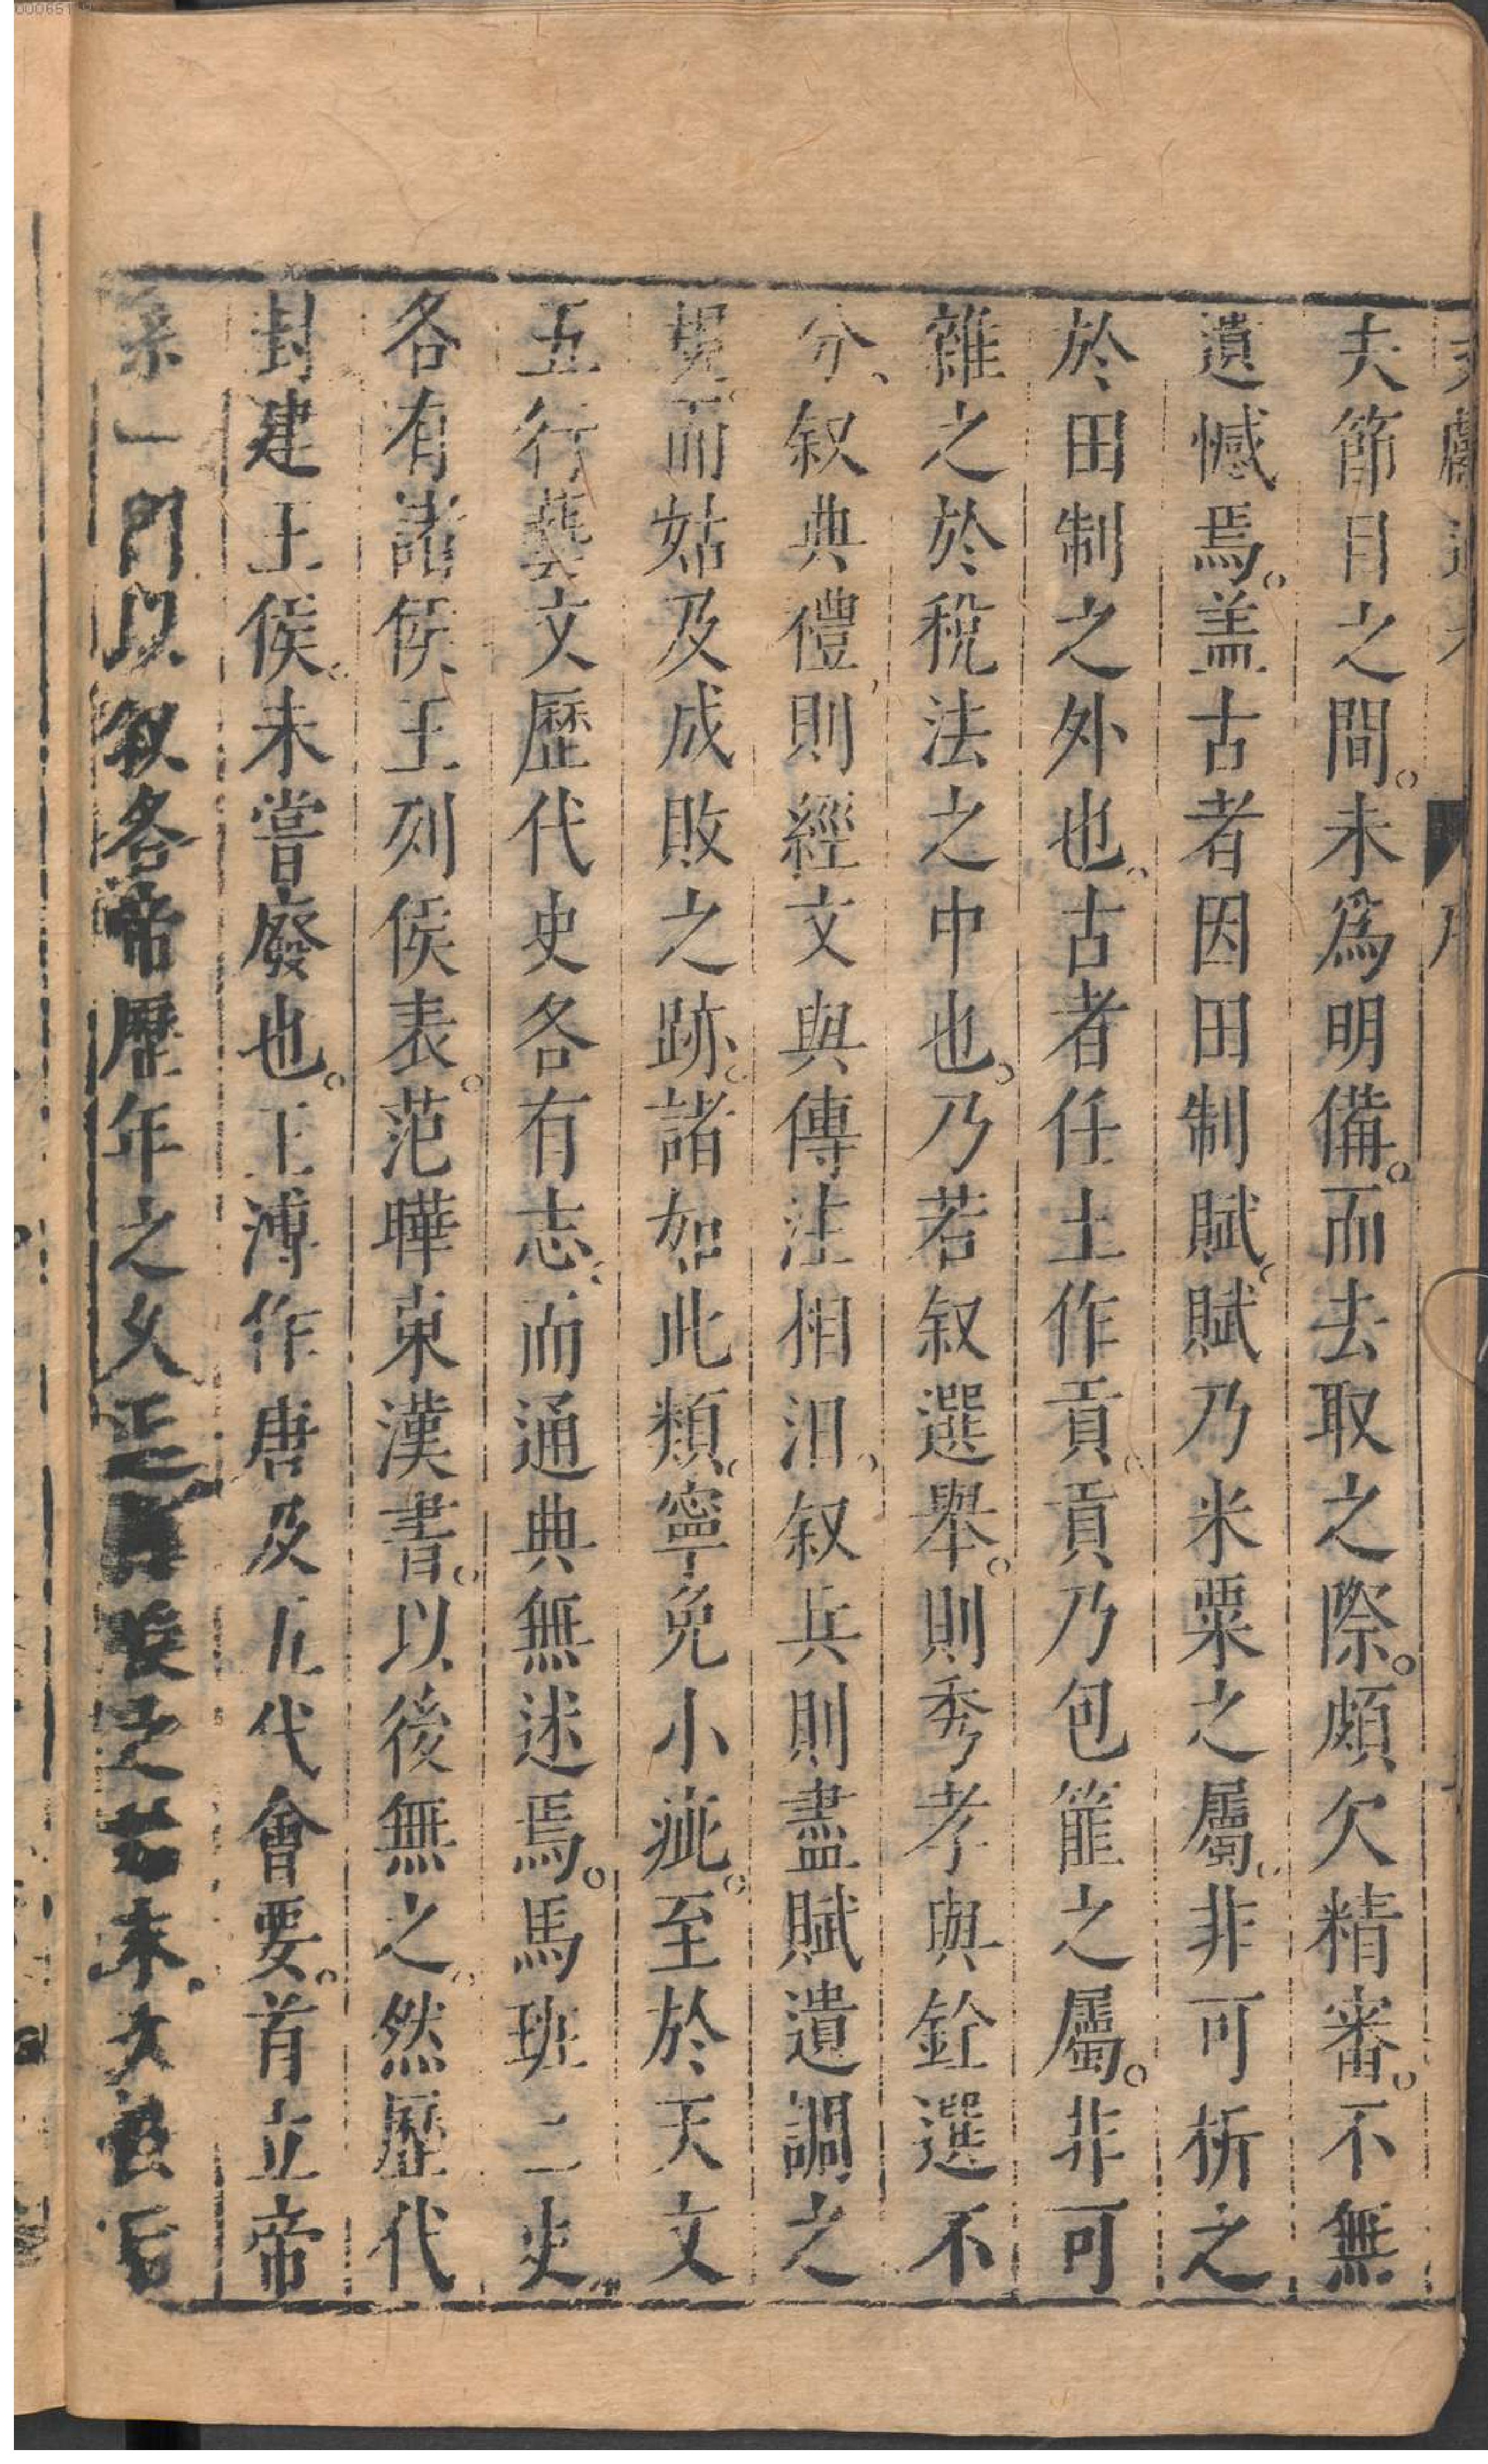 文獻通考 序
夫節目之間。未爲明備。而去取之際。頗欠精審。不無
遺憾焉。盖古者因田制賦、賦乃米粟之屬。非可析之
於田制之外也。古者任土作貢、貢乃包篚之屬。非可
雜之於稅法之中也。乃若叙選舉。則秀孝與銓選不
分、叙典禮、則經文與傳注相汨、叙兵則盡賦遺調之
規、而姑及成敗之跡、諸如此類、寧免小疵。至於天文
五行藝文歷代史各有志、而通典無述焉。馬班二史。
各有諸侯王列侯表。范曄東漢書。以後無之。然歷代
封建王侯。未嘗廢也。王溥作唐及五代會要。首立帝
系一門以叙各帝歷年之久
之
末